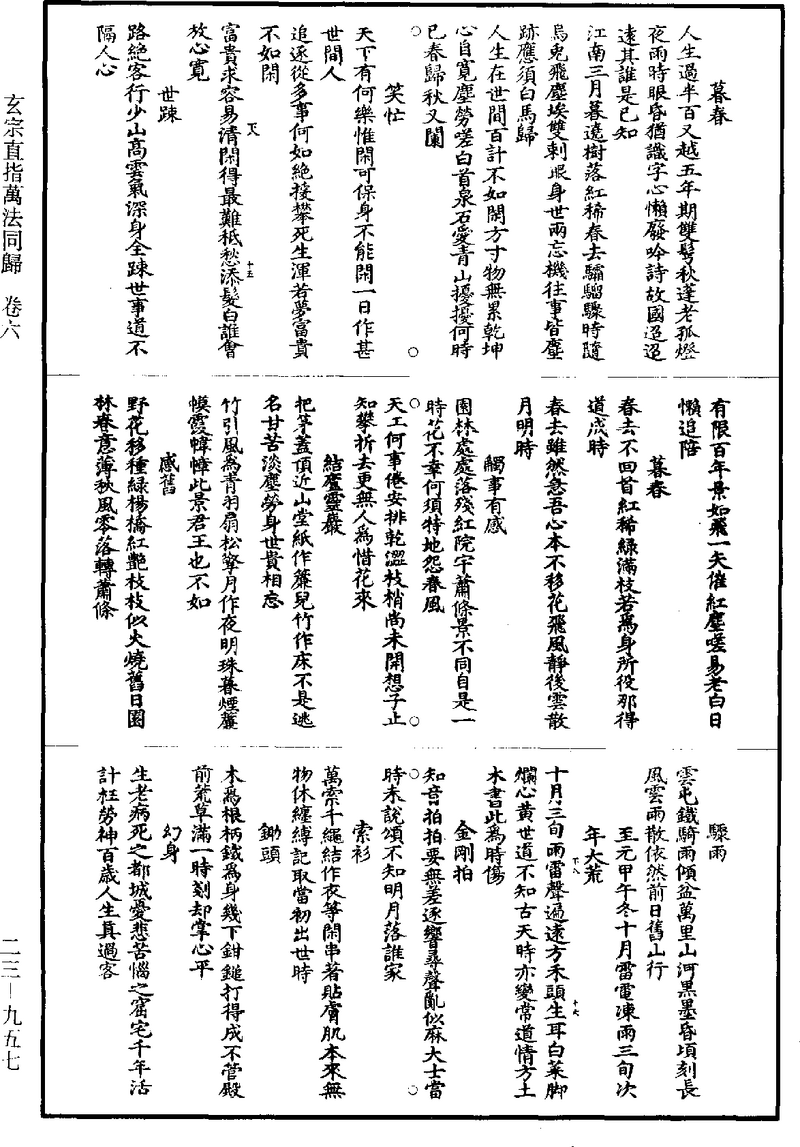 暮春
人生過半百又越五年期雙髩秋蓬老孤燈
夜雨時眼昏猶識字心懶廢吟詩故國迢迢
遠其誰是已知
江南三月暮遶樹落紅稀春去驌驑驟時隨
烏兎飛塵埃雙剌眼身世兩忘機往事皆塵
跡應須白馬歸
人生在世間百計不如閑方寸物無累乾坤
心自寬塵勞嗟白首泉石愛青山擾擾何時
已春歸秋又闌
笑忙
天下有何樂惟閑可保身不能閑一日作甚
世間人
追逐從多事何如絶接攀死生渾若夢富貴
不如閑
富貴求容易清閑得最難秪愁添髮白誰會
放心寬
世踈
路絶客行少山高雲氣深身全踈世事道不
隔人心
有限百年景如飛一矢催紅塵嗟易老白日
懶追陪
暮春
春去不回首紅稀緑滿枝若爲身所役那得
道成時
春去雖然急吾心本不移花飛風靜後雲散
月明時
觸事有感
園林處處落殘紅院宇蕭條景不同自是一
時花不幸何須特地怨春風
天工何事倦安排乾溫枝梢尚未開想子止
知攀折去更無人爲惜花來
結廬靈巖
把茅蓋頂近山堂紙作簾兒竹作床不是逃
名甘苦淡塵勞身世貴相忘
竹引風爲青羽扇松擎月作夜明珠暮煙簾
幙霞幃幛此景君王也不如
感舊
野花移種緑楊橋紅艷枝枝似火燒舊日園
林春意薄秋風零落轉蕭條
驟雨
雲屯鐵騎雨傾盆萬里山河黒墨昏頃刻長
風雲雨散依然前日舊山行
至元甲午冬十月雷電凍雨三旬次
年大荒
十月三旬雨雷聲遍遠方禾頭生耳白菜脚
爛心黄世道不知古天時亦變常道情方土
木書此爲時傷
金剛拍
知音拍拍要無差逐響尋聲亂似麻大士當
時未說頌不知明月落誰家
索衫
萬索千繩結作衣等閑串著貼膚肌本來無
物休纏縛記取當初出世時
鋤頭
木爲根柄鐵爲身幾下鉗鎚打得成不管殿
前荒草滿一時剗却掌心平
幻身
生老病死之都城憂悲苦惱之窟宅千年活
計枉勞神百歳人生真過客
玄宗直指萬法同歸　卷六
二三—九五七